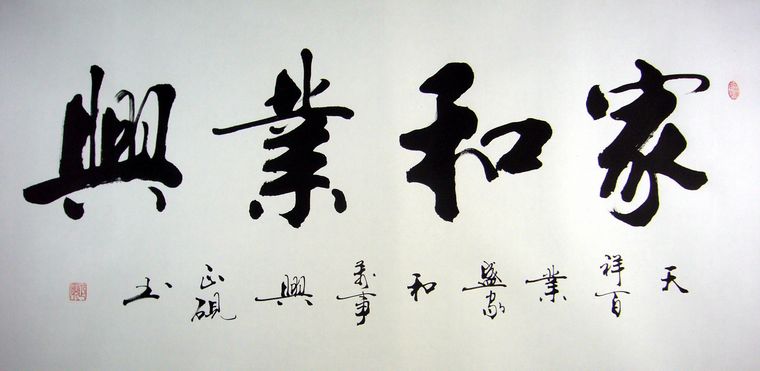 家和業興
天祥百業盛家和萬事興 正硯书